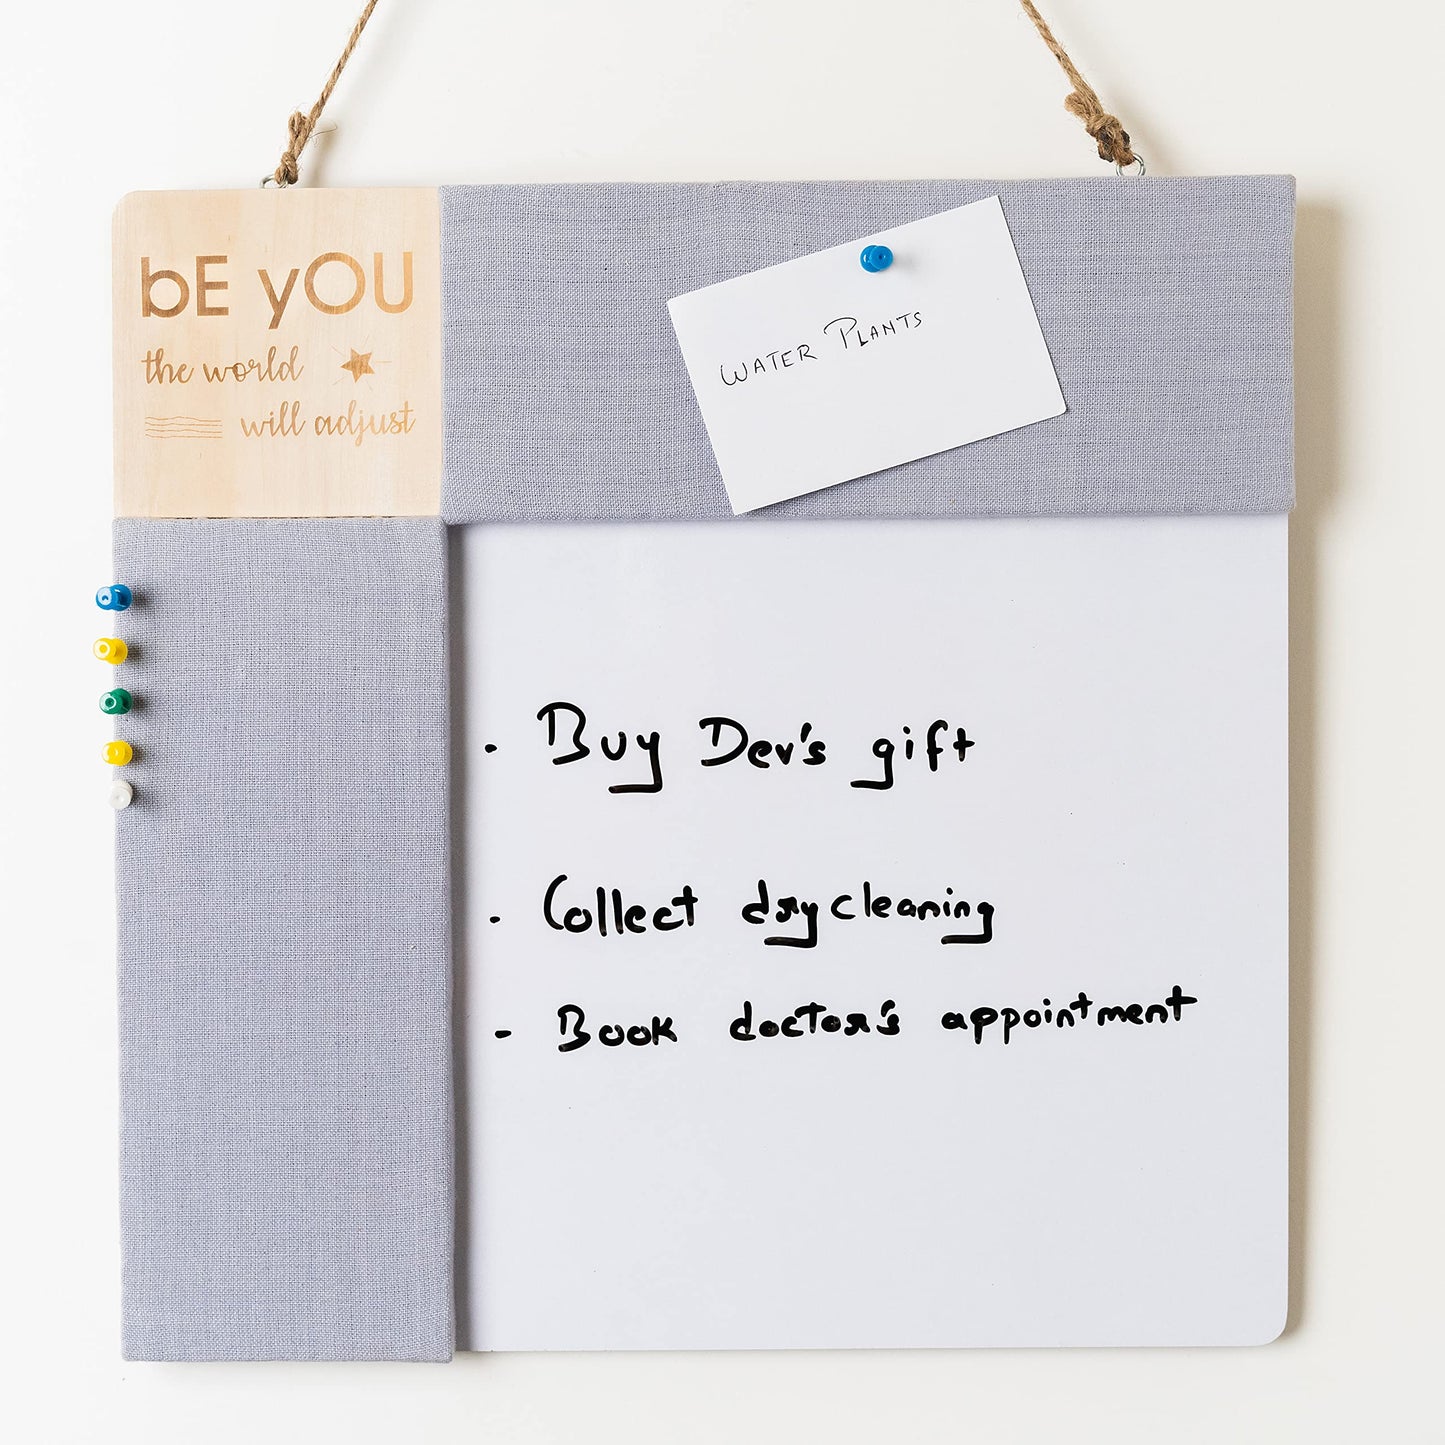 bE yOU
the world
will adjust
WATER PLANTS
• Buy Dev's gift
• Collect drycleaning
- Book doctor's appointment